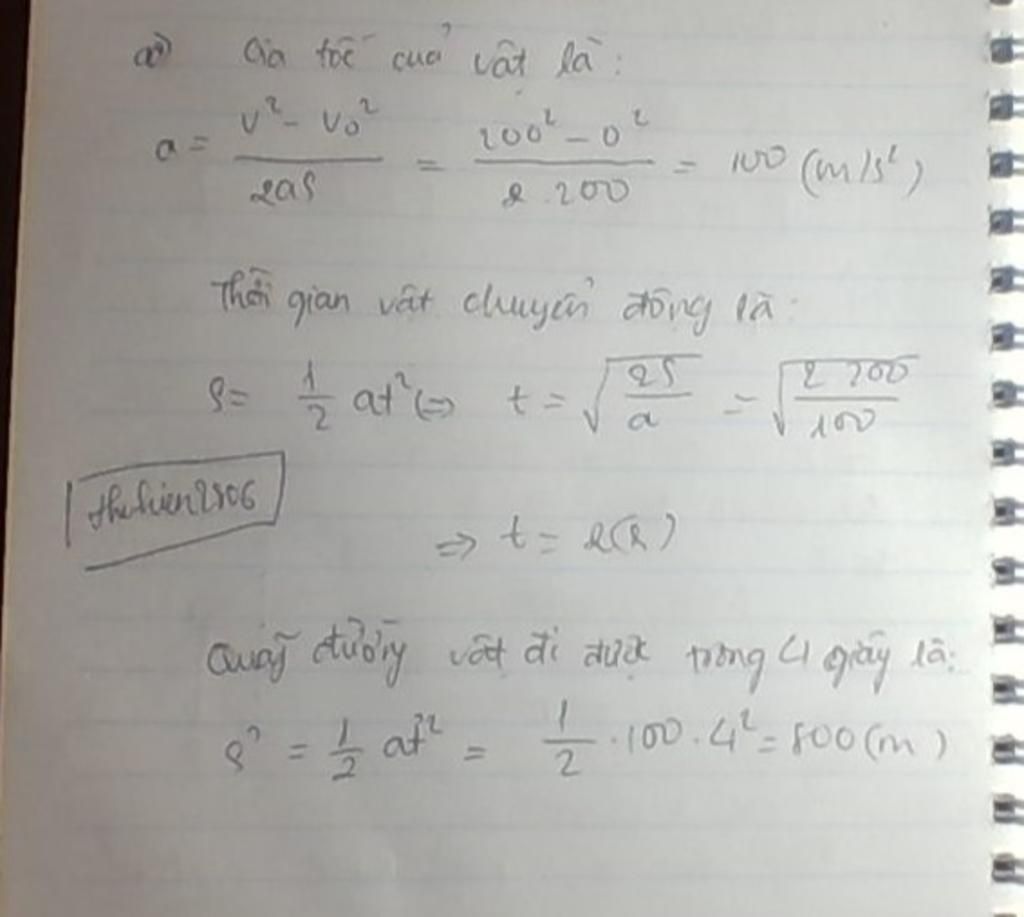 a) Gia tốc của vật là:
a = (v² - v₀²)/(2as) = (200² - 0²)/(2.200) = 100 (m/s²)
Thời gian vật chuyển động là:
S = 1/2 at² (=> t = √(2S/a) = √(2 200/100)
=> t = 2(s)
Quãng đường vật đi được trong 4 giây là:
S' = 1/2 at'² = 1/2 . 100 . 4² = 800 (m)